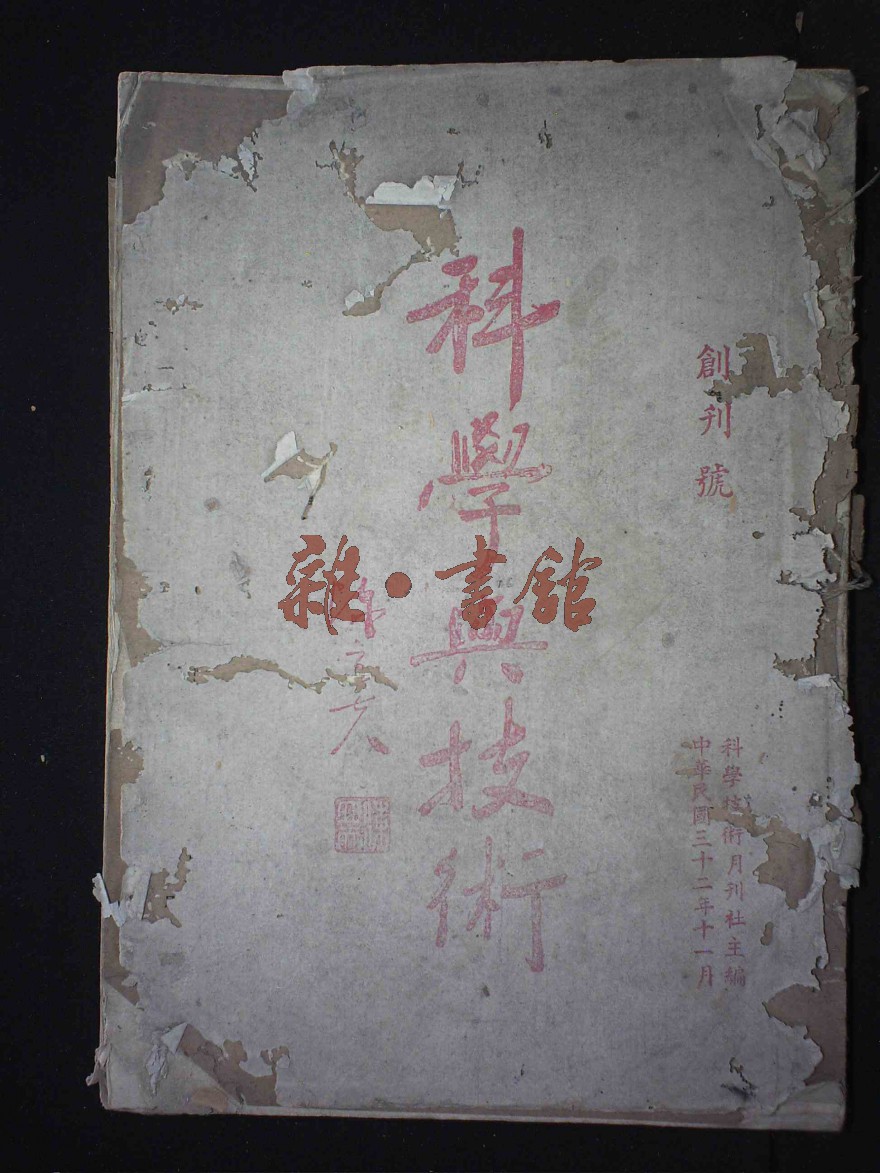 創刊號
科學技術月刊社主編
中華民國三十二年十一月
科學與技術
雜·書館